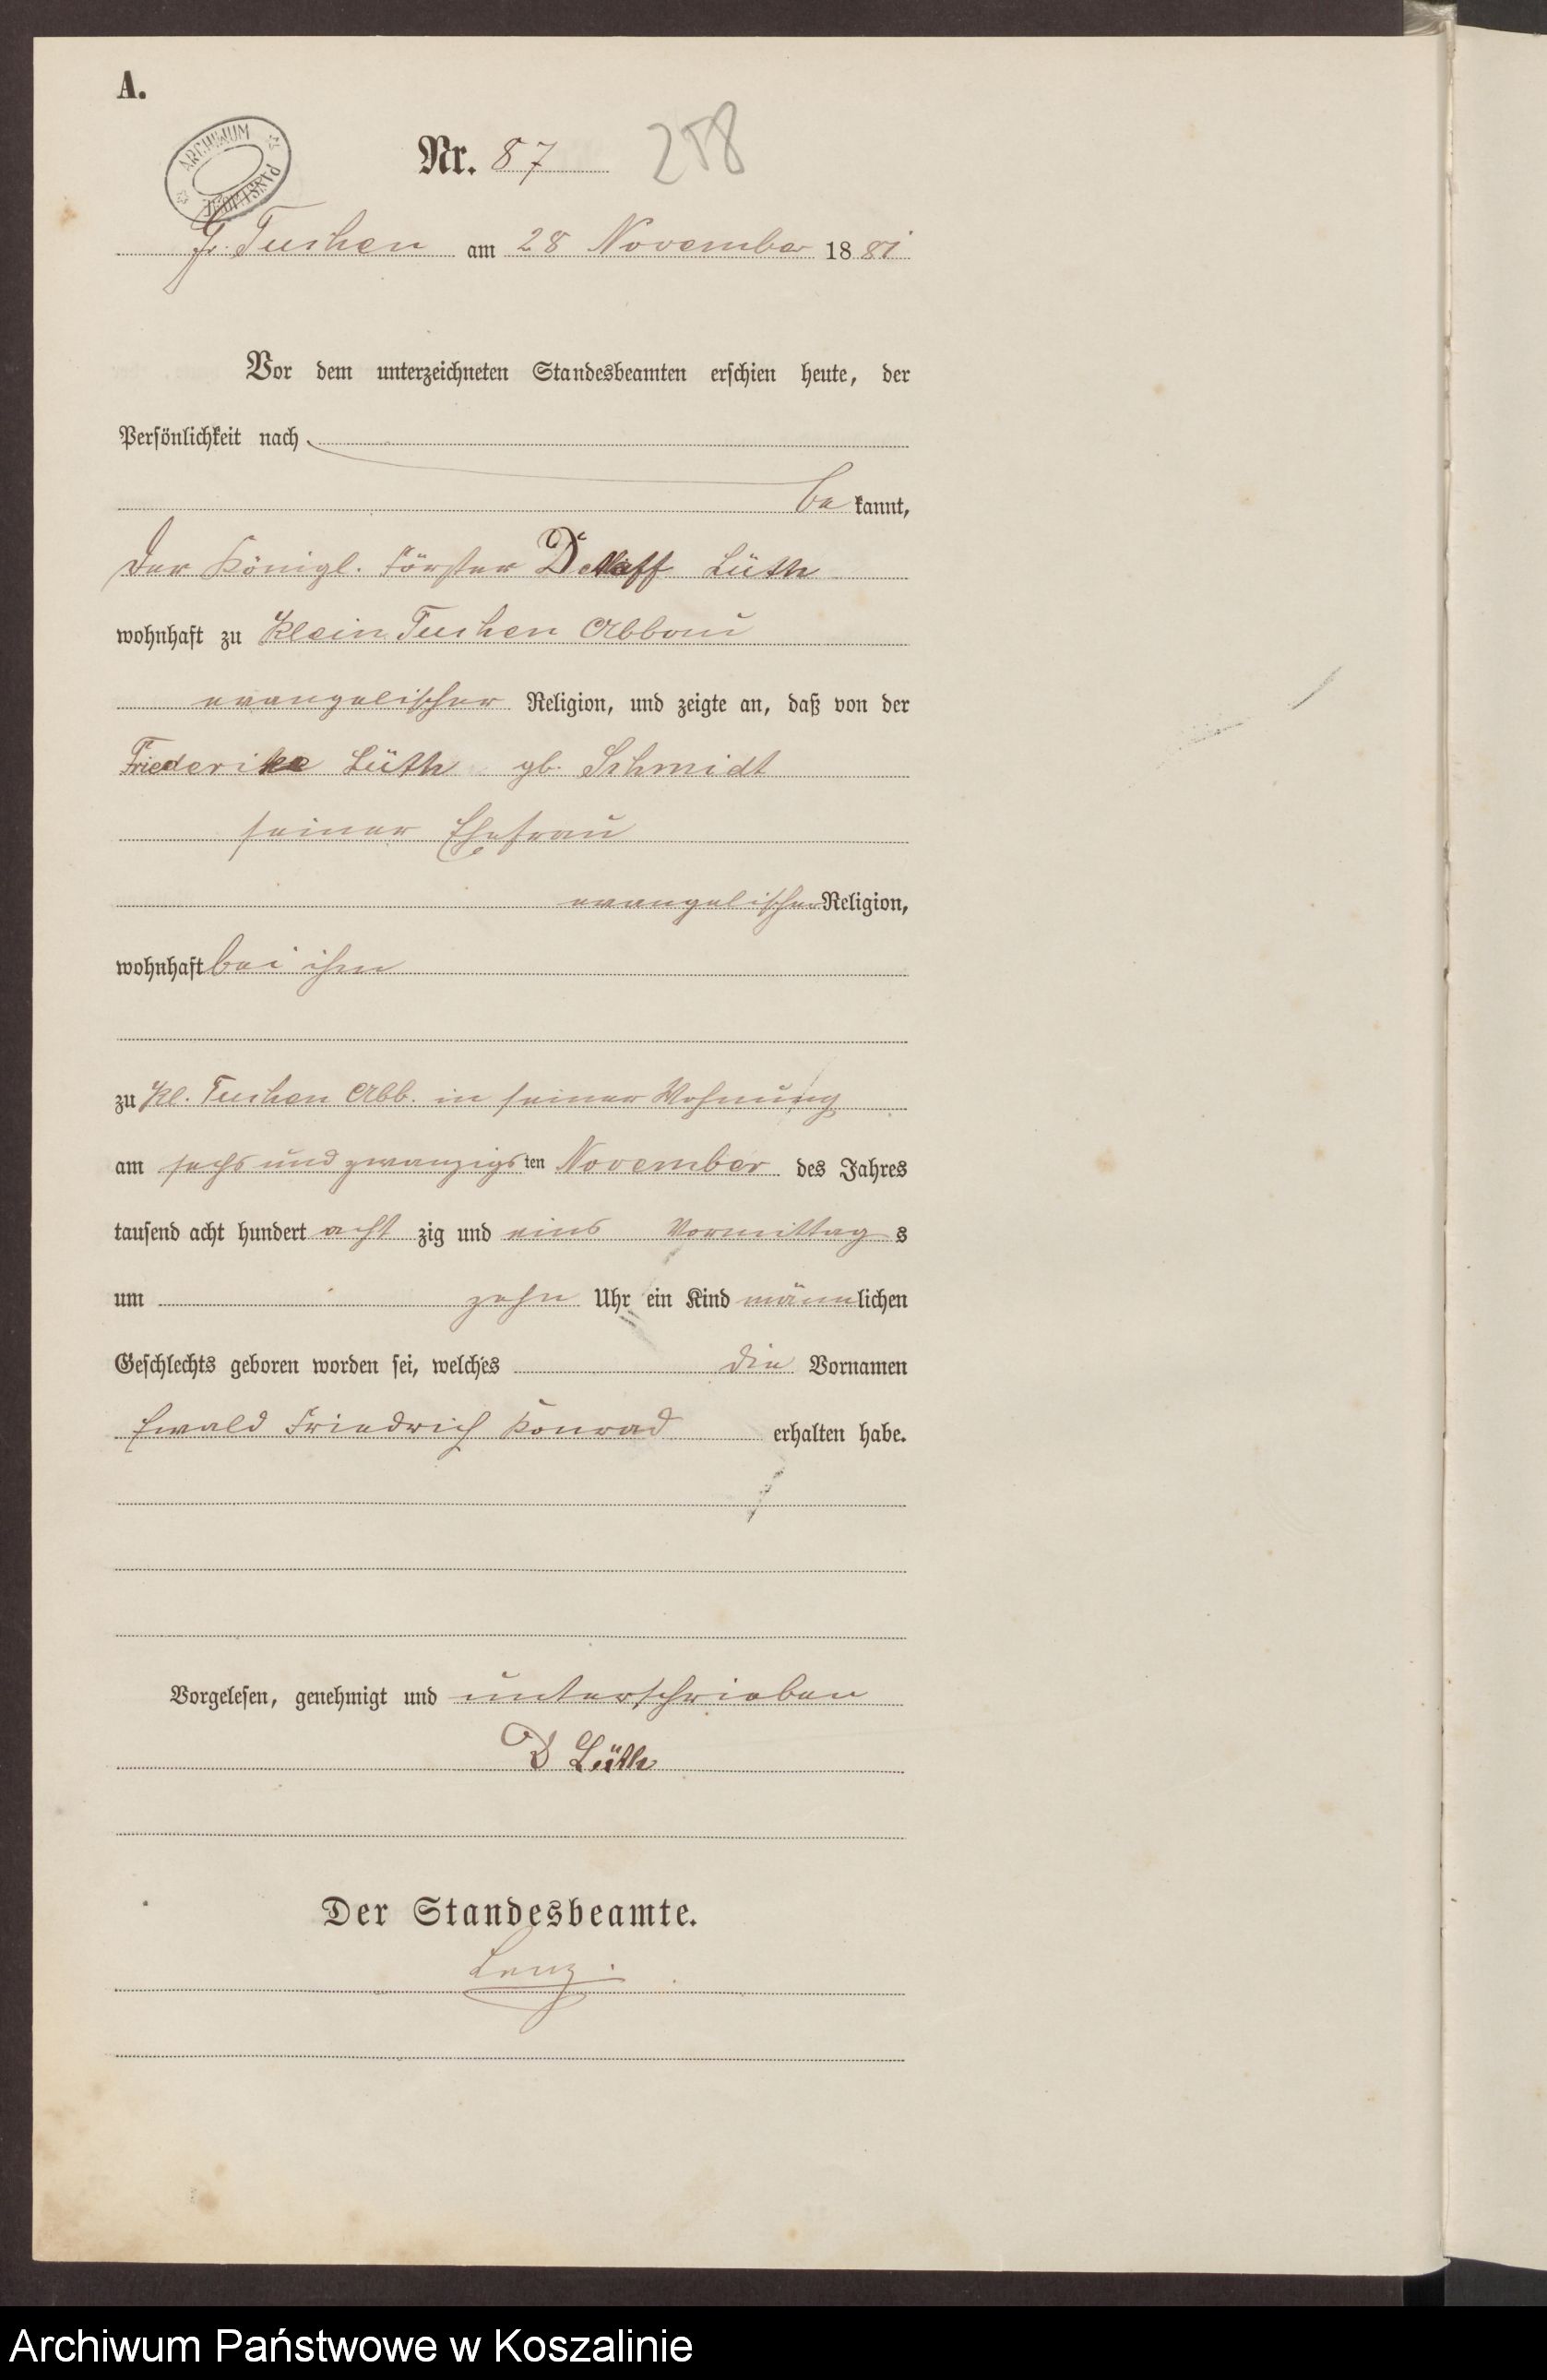 A.
ARCHIWUM PAŃSTWOWE
Nr. 87 258
Gr. Tuchen am 28 November 1881
Vor dem unterzeichneten Standesbeamten erschien heute, der
Persönlichkeit nach
bekannt,
der Königl. Förster Detleff Lüth
wohnhaft zu Klein Tuchen Abbau
evangelischer Religion, und zeigte an, daß von der
Friederike Lüth gb. Schmidt
seiner Ehefrau
evangelischer Religion,
wohnhaft bei ihm
zu Kl. Tuchen Abb. in seiner Wohnung
am sechs und zwanzigsten November des Jahres
tausend acht hundert acht zig und eins Vormittags
um zehn Uhr ein Kind männlichen
Geschlechts geboren worden sei, welches die Vornamen
Ewald Friedrich Konrad erhalten habe.
Vorgelesen, genehmigt und unterschrieben
D Lüth
Der Standesbeamte.
Lenz.
Archiwum Państwowe w Koszalinie